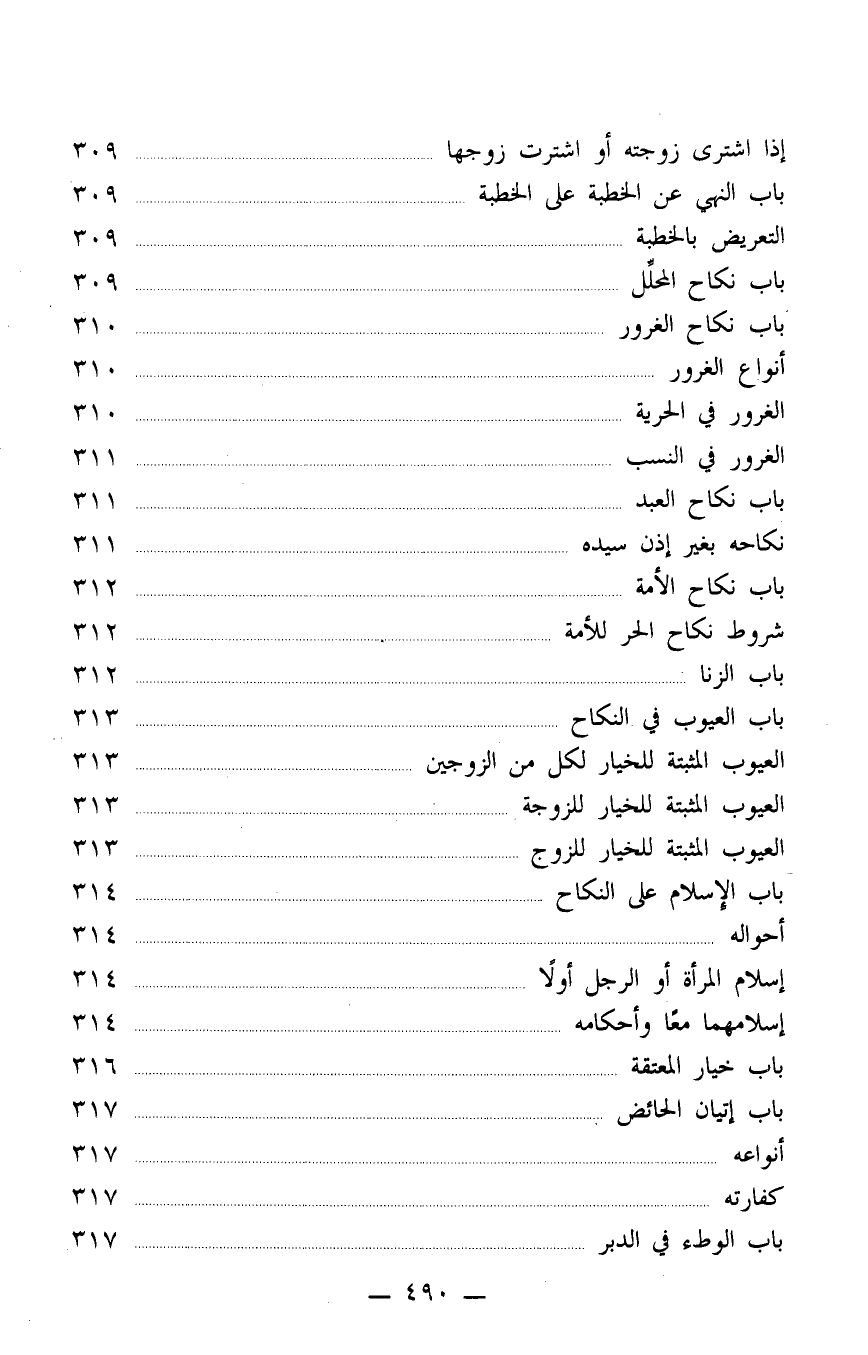 إذا اشترى زوجته أو اشترت زوجها ٣٠٩
باب النهي عن الخطبة على الخطبة ٣٠٩
التعريض بالخطبة ٣٠٩
باب نكاح المحلِّل ٣٠٩
باب نكاح الغرور ٣١٠
أنواع الغرور ٣١٠
الغرور في الحرية ٣١٠
الغرور في النسب ٣١١
باب نكاح العبد ٣١١
نكاحه بغير إذن سيده ٣١١
باب نكاح الأمة ٣١٢
شروط نكاح الحر للأمة ٣١٢
باب الزنا ٣١٢
باب العيوب في النكاح ٣١٣
العيوب المثبتة للخيار لكل من الزوجين ٣١٣
العيوب المثبتة للخيار للزوجة ٣١٣
العيوب المثبتة للخيار للزوج ٣١٣
باب الإسلام على النكاح ٣١٤
أحواله ٣١٤
إسلام المرأة أو الرجل أولًا ٣١٤
إسلامهما معًا وأحكامه ٣١٤
باب خيار المعتقة ٣١٦
باب إتيان الحائض ٣١٧
أنواعه ٣١٧
كفارته ٣١٧
باب الوطء في الدبر ٣١٧
— ٤٩٠ —